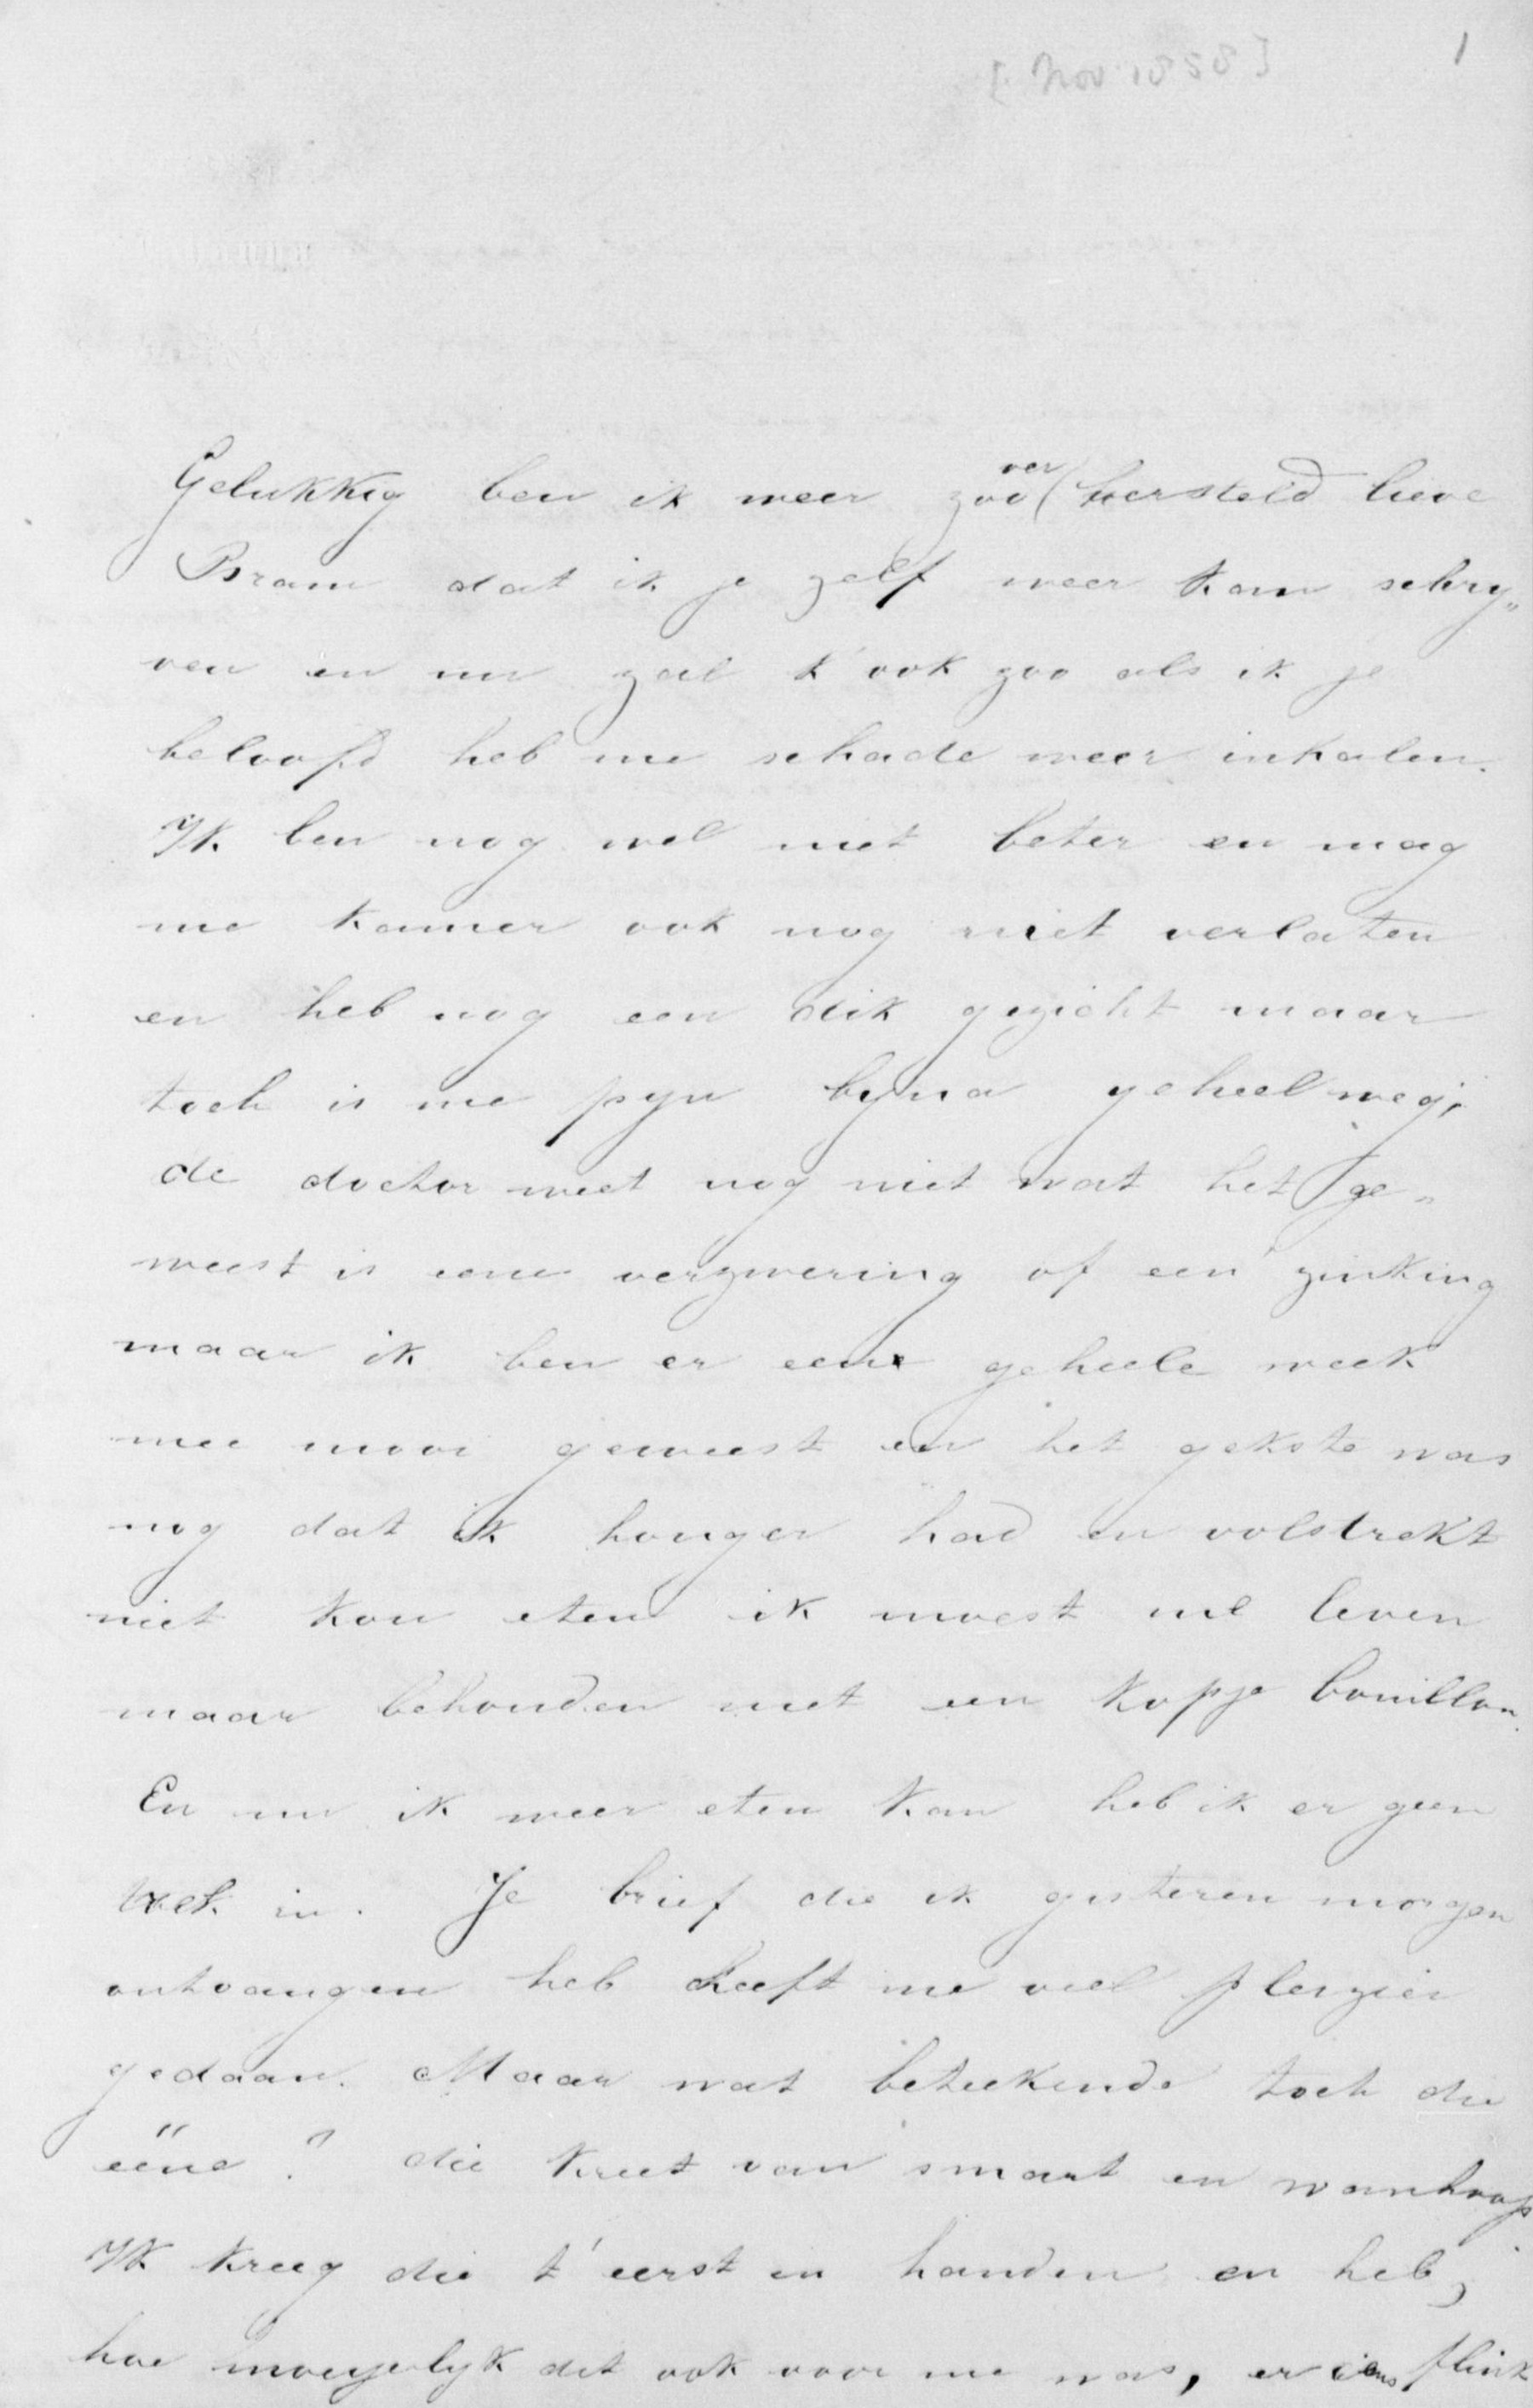 [Nov 1888]
1
Gelukkig ben ik weer zoover hersteld lieve
Bram dat ik je zelf weer kan schry„
ven en nu zal k' ook zoo als ik je
beloofd heb me schade weer inhalen.
Ik ben nog wel niet beter en mag
me kamer ook nog niet verlaten
en heb nog een dik gezicht maar
toch is me pyn byna geheel weg;
de doctor weet nog niet wat het ge„
weest is eene verzwering of een zinking
maar ik ben er eene geheele week
mee mooi geweest en het gekste was
nog dat ik honger had en volstrekt
niet kon eten ik moest me leven
maar behouden met een kopje bouillon.
En nu ik weer eten kan heb ik er geen
trek in. Je brief die ik gisteren morgen
ontvangen heb heeft me veel pleizier
gedaan. Maar wat beteekende toch die
eëne? die kreet van smart en wanhoop
Ik kreeg die t' eerst in handen en heb,
hoe moeyelyk dit ook voor me was, er eens flink